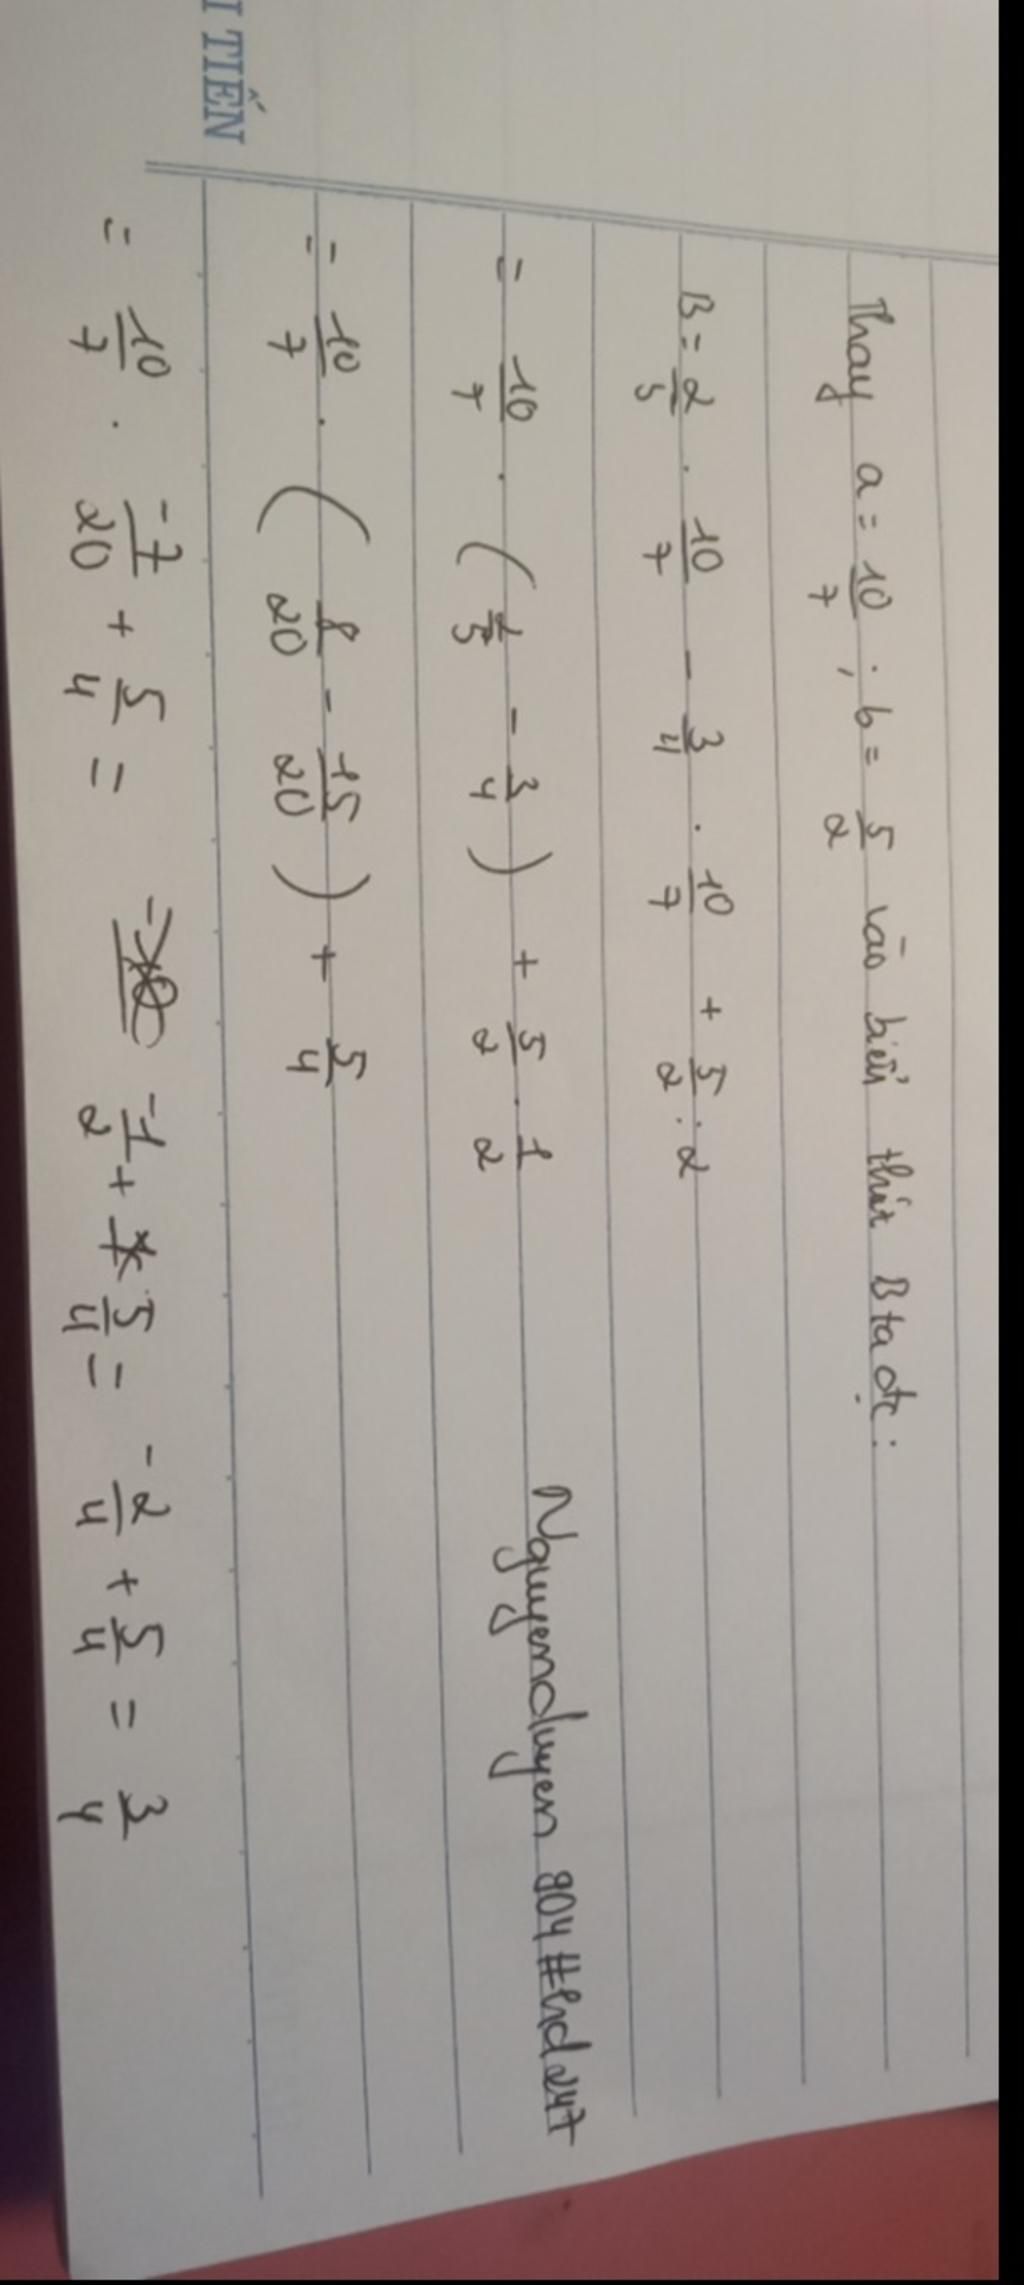 I TIẾN
Thay a = 10/7 ; b = 5/2 vào biểu thức B ta đc :
B = 2/5 . 10/7 - 3/4 . 10/7 + 5/2 : 2
= 10/7 . ( 2/5 - 3/4 ) + 5/2 . 1/2
Nguyenduyen 804#hd247
= 10/7 . ( 8/20 - 15/20 ) + 5/4
= 10/7 . -7/20 + 5/4 = -1/2 + 5/4 = -2/4 + 5/4 = 3/4